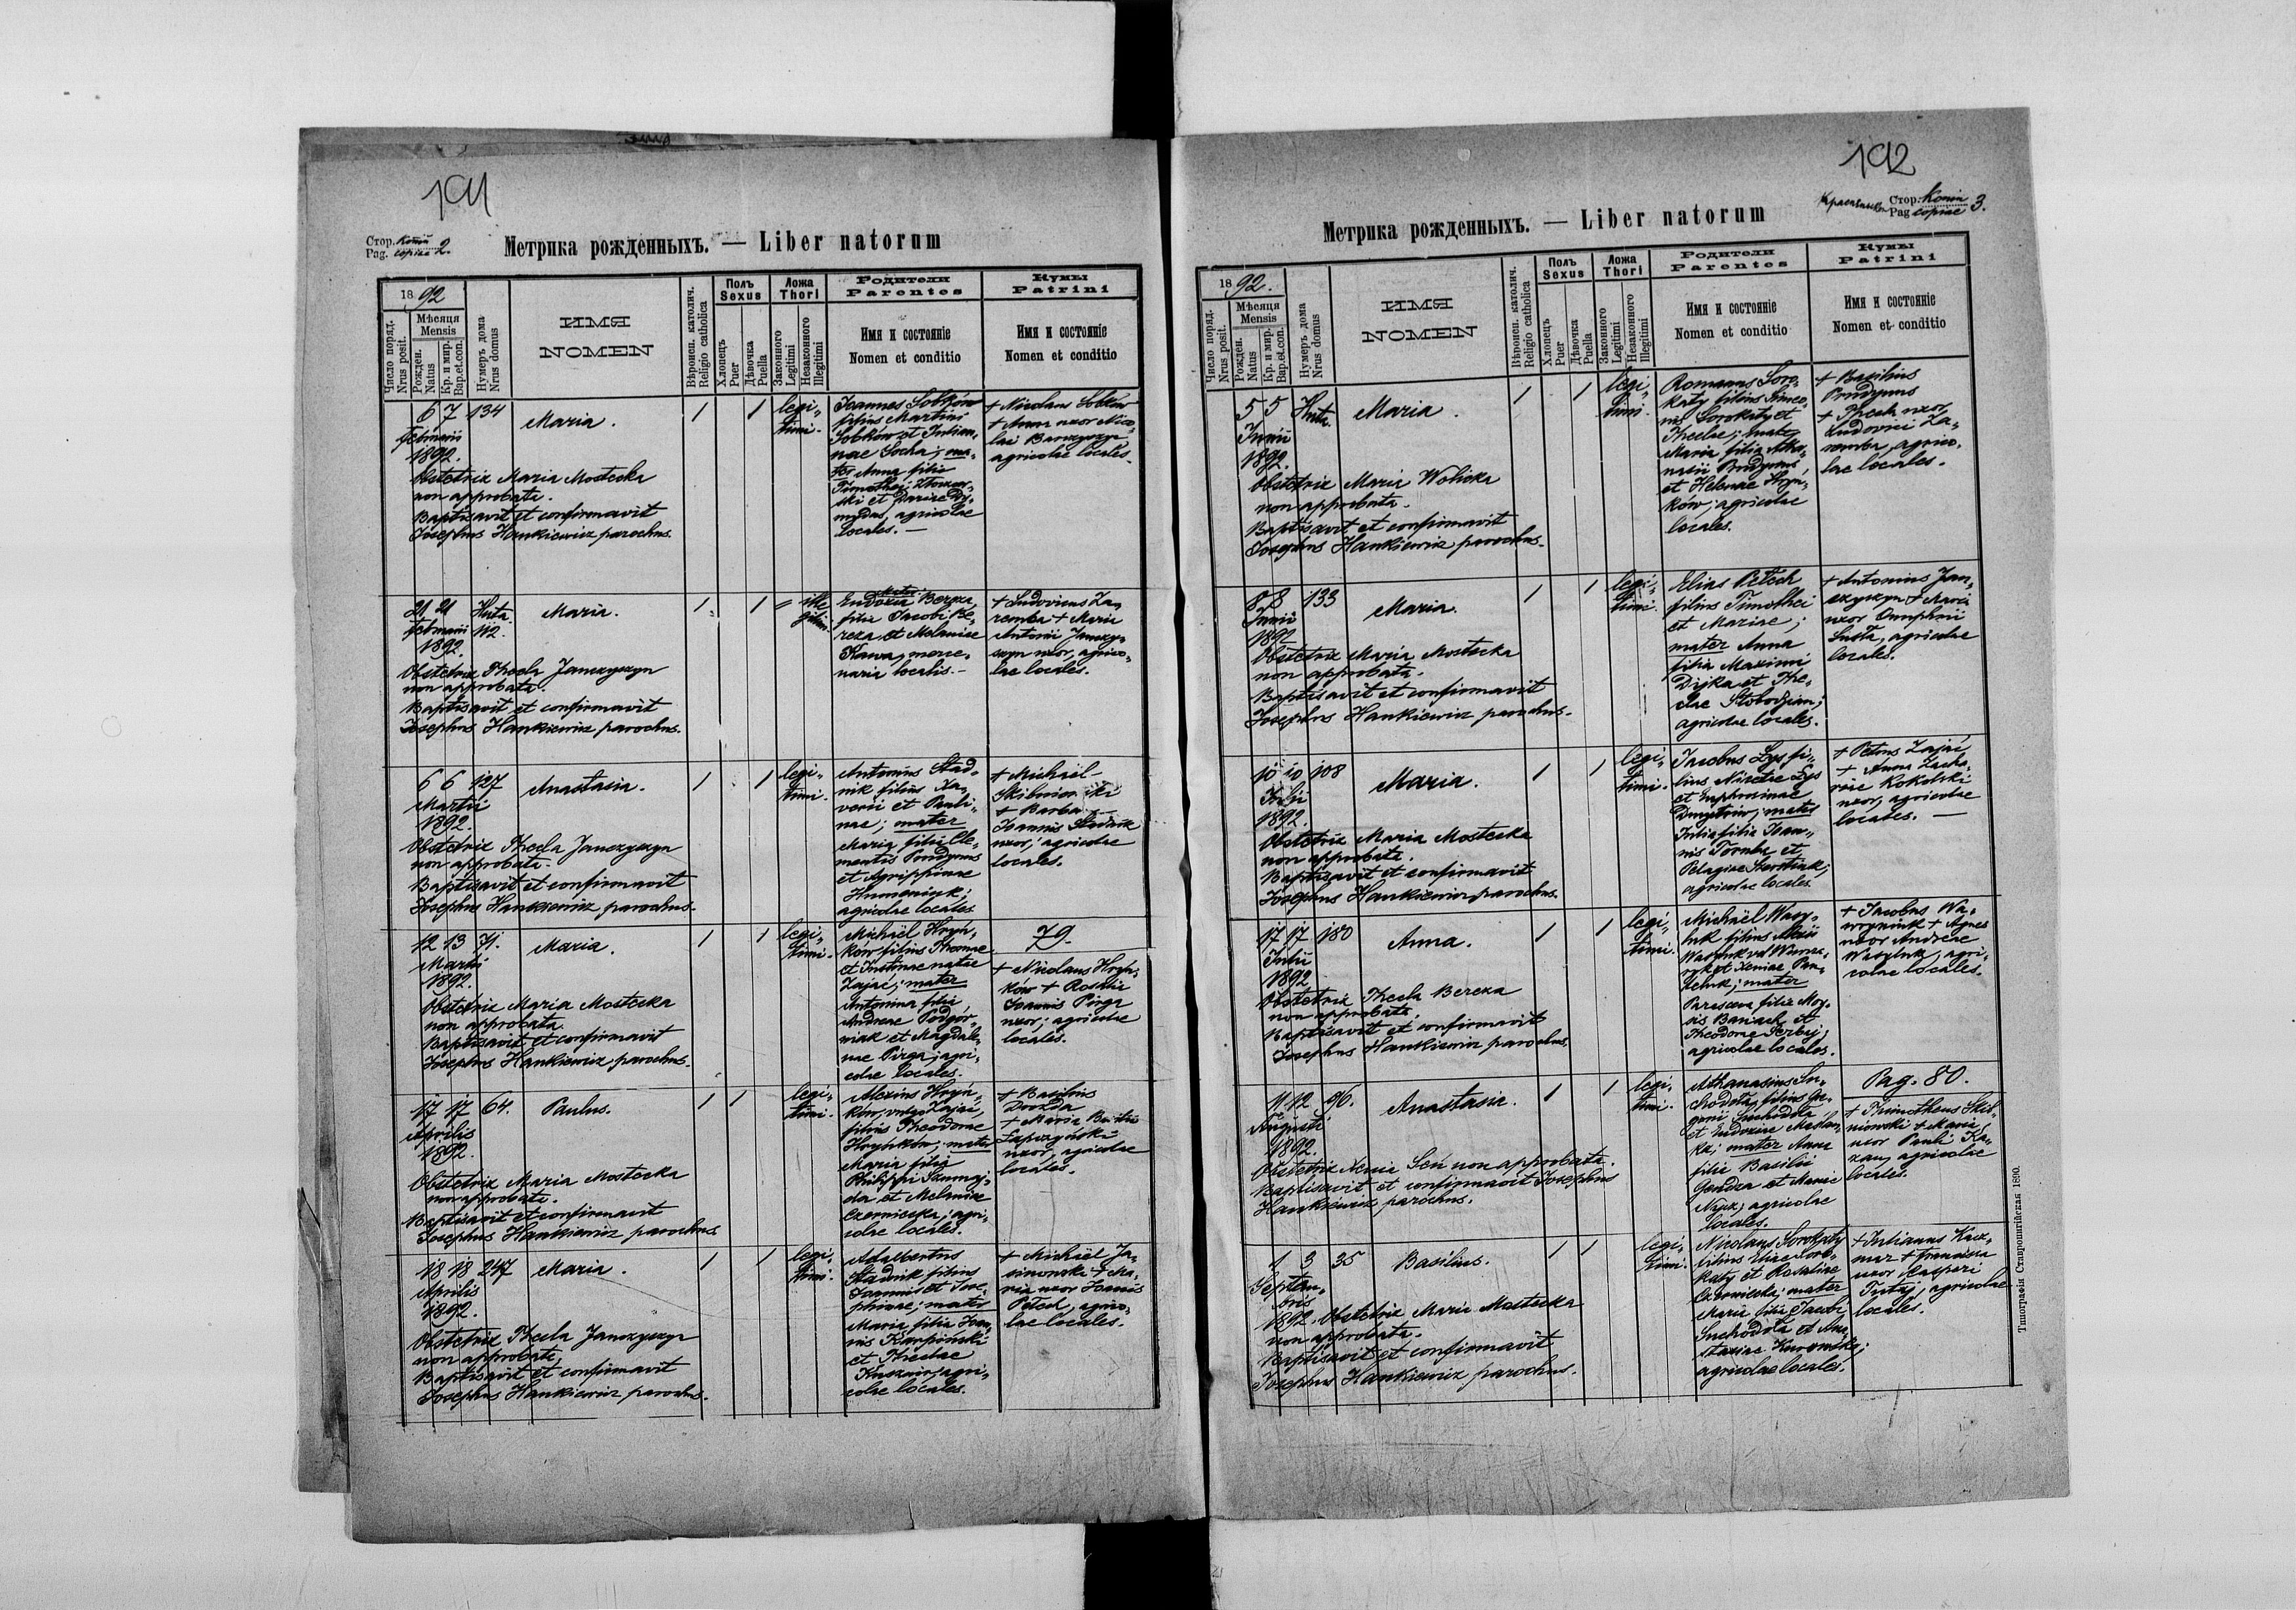 191
Стор. копіи
Pag. copiae 2.
Метрика рожденныхъ. — Liber natorum
1892
Число поряд.
Nrus posit.
Мѣсяця
Mensis
Рожден.
Natus
Кр. и мир.
Bap. et. con.
Нумеръ дома
Nrus domus
ИМЯ
NOMEN
Вѣроисп. католич.
Religio catholica
Полъ
Sexus
Хлопець
Puer
Дѣвочка
Puella
Ложа
Thori
Законного
Legitimi
Незаконного
Illegitimi
Родители
Parentes
Имя и состояніе
Nomen et conditio
Кумы
Patrini
Имя и состояніе
Nomen et conditio
6 7 134 Maria. 1 1 legi-
timi.
Februarii
1892.
Obstetrix Maria Mostecka
non approbata.
Baptisavit et confirmavit
Josephus Hankiewicz parochus.
Joannes Sobków
filius Martini
Sobków et Julian-
nae Socha; ma-
ter Anna filia
Timothei
ski et Dariae Dy-
mydas, agricolae
locales. —
+ Nicolaus Sobków
+ Anna uxor Nico-
lai Banczyczyn
agricolae locales.
21 21 Huta Maria. 1 1 ille-
gitimi.
Februarii 112.
1892.
Obstetrix Thecla Janczyczyn
non approbata.
Baptisavit et confirmavit
Josephus Hankiewicz parochus.
Eudoxia Bereza,
filia Jacobi Be-
reza et Melaniae
Kawa, merce-
naria localis. —
+ Ludovicus Za-
remba + Maria
Antonii Janczy-
czyn uxor, agrico-
lae locales.
6 6 127 Anastasia. 1 1 legi-
timi.
Martii
1892.
Obstetrix Thecla Janczyczyn
non approbata.
Baptisavit et confirmavit
Josephus Hankiewicz parochus.
Antonius Stad-
nik filius Xa-
verii et Pauli-
nae; mater
Maria filia Cle-
mentis Prudywus
et Agrippinae
Humeniuk;
agricolae locales
+ Michaël
Skibniewski
+ Barbara
Joannis Stadnik
uxor, agricolae
locales.
12 13 71. Maria. 1 1 legi-
timi.
Martii
1892.
Obstetrix Maria Mostecka
non approbata.
Baptisavit et confirmavit
Josephus Hankiewicz parochus.
Michaël Hryń-
ków filius Thomae
et Justinae natae
Zając; mater
Antonina filia
Andreae Podgór-
niak et Magdale-
nae Pirga; agri-
colae locales.
79.
+ Nicolaus Hryń-
ków + Rosalia
Joannis Pirga
uxor; agricolae
locales.
17 17 64. Paulus. 1 1 legi-
timi.
Aprilis
1892.
Obstetrix Maria Mostecka
non approbata.
Baptisavit et confirmavit
Josephus Hankiewicz parochus
Alexius Hryń-
ków, vulgo Zając,
filius Theodorae
Hryńków; mater
Maria filia
Philippi Szumej-
da et Melaniae
Czerniecka; agri-
colae locales.
+ Basilius
Drozda
+ Maria Basilii
Łapczyński
uxor, agricolae
locales.
18 18 247 Maria. 1 1 legi-
timi.
Aprilis
1892.
Obstetrix Thecla Janczyczyn
non approbata.
Baptisavit et confirmavit
Josephus Hankiewicz parochus.
Adalbertus
Stadnik filius
Joannis et Jose-
phinae; mater
Maria filia Joan-
nis Karpiński
et Theclae
agri-
colae locales.
+ Michaël Ja-
sinowski + Ma-
ria uxor Joannis
Petech, agrico-
lae locales.
192
Стор. копіи
Pag copiae 3.
Метрика рожденныхъ. — Liber natorum
1892.
Число поряд.
Nrus posit.
Мѣсяця
Mensis
Рожден.
Natus
Кр. и мир.
Bap. et. con.
Нумеръ дома
Nrus domus
ИМЯ
NOMEN
Вѣроисп. католич.
Religio catholica
Полъ
Sexus
Хлопець
Puer
Дѣвочка
Puella
Ложа
Thori
Законного
Legitimi
Незаконного
Illegitimi
Родители
Parentes
Имя и состояніе
Nomen et conditio
Кумы
Patrini
Имя и состояніе
Nomen et conditio
5 5 Huta. Maria. 1 1 legi-
timi.
Junii
1892.
Obstetrix Maria Wolicka
non approbata.
Baptisavit et confirmavit
Josephus Hankiewicz parochus.
Romanus Soro-
katy filius Simeo-
nis Sorokaty et
Theclae; mater
Maria filia Atha-
nasii Prudywus,
et Helenae Hryń-
ków; agricolae
locales.
+ Basilius
Prudywus
+ Thecla uxor
Ludovici Za-
remba, agrico-
lae locales.
8 8 133 Maria. 1 1 legi-
timi.
Junii
1892
Obstetrix Maria Mostecka
non approbata.
Baptisavit et confirmavit
Josephus Hankiewicz parochus.
Elias Petech
filius Timothei
et Mariae;
mater Anna
filia Maximi
Dijka et The-
clae Słobodjan;
agricolae locales.
+ Antonius Jan-
czyczyn + Maria
uxor Onuphrii
Susła, agricolae
locales.
10 10 108 Maria. 1 1 legi-
timi.
Julii
1892.
Obstetrix Maria Mostecka
non approbata.
Baptisavit et confirmavit
Josephus Hankiewicz parochus.
Jacobus Lys fi-
lius Nicetae Lys
et Euphrosinae
Dmytrów; mater
Julia filia Joan-
nis Tornba et
Pelagiae
agricolae locales.
+ Petrus Zając
+ Anna Zacha-
riae Rokolski
uxor, agricolae
locales. —
17 17 180 Anna. 1 1 legi-
timi.
Julii
1892
Obstetrix Thecla Bereza
non approbata.
Baptisavit et confirmavit
Josephus Hankiewicz parochus.
Michaël Wasy-
luk filius
Wasyluk
et Xeniae
mater
Parasceva filia Moy-
sis Baniach et
Theodorae Serbij;
agricolae locales.
+ Jacobus Wa-
wryniuk + Agnes
uxor Andreae
Wasyluk, agri-
colae locales.
11 12 96. Anastasia. 1 1 legi-
timi.
Augusti
1892.
Obstetrix Xenia Seń non approbata.
Baptisavit et confirmavit Josephus
Hankiewicz parochus.
Athanasius Su-
chodoła, filius Gre-
gorii Suchodoła
et Eudoxiae
mater Anna
filia Basilii
Gendza et Mariae
agricolae
locales.
Pag. 80.
+ Timotheus Skib-
niewski + Maria
uxor Pauli Ka-
zan, agricolae
locales.
1 3 35 Basilius. 1 1 legi-
timi.
Septem-
bris
1892. Obstetrix Maria Mostecka
non approbata.
Baptisavit et confirmavit
Josephus Hankiewicz parochus.
Nicolaus Sorokaty
filius Eliae Soro-
katy et Rosaliae
Czerniecka; mater
Maria filia Jacobi
Suchodoła et Ana-
stasiae
agricolae locales.
+ Julianus Kacz-
mar + Francisca
uxor Casperi
agricolae
locales.
Типографія Ставропигійская 1890.